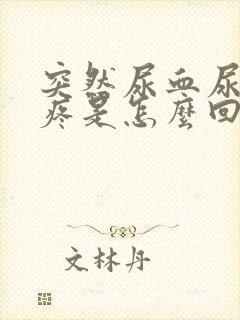 突然尿血尿
疼是怎麼回
文林丹